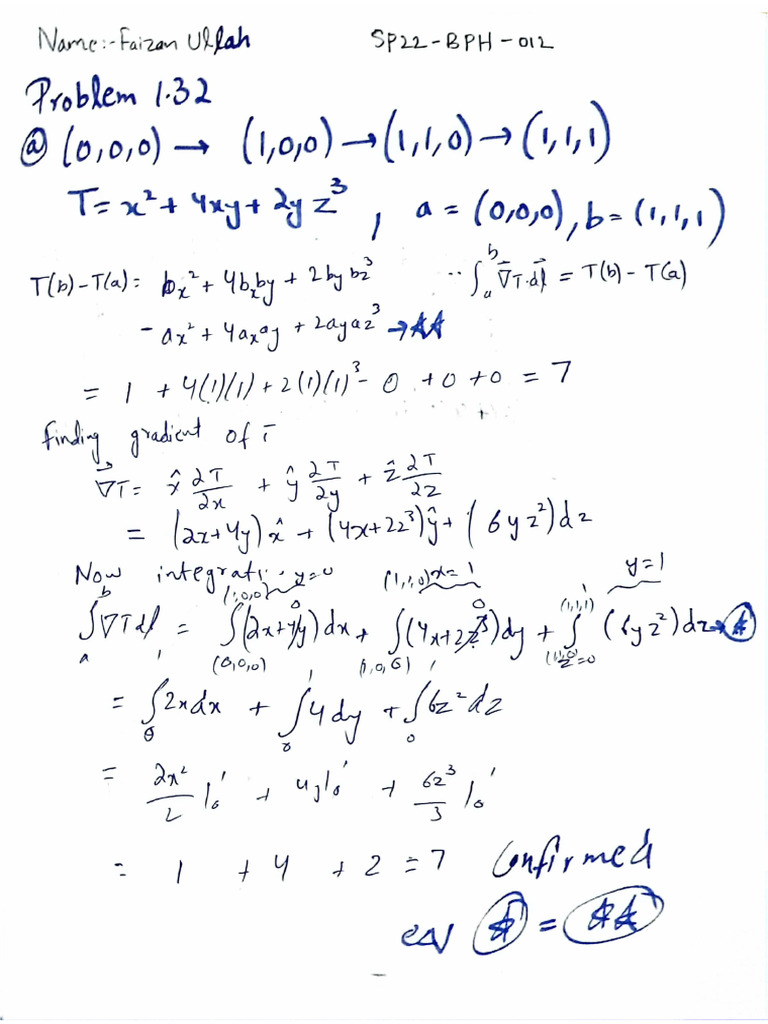 Name:-Faizan Ullah SP22-BPH-012
Problem 1.32
ⓐ (0,0,0) → (1,0,0) → (1,1,0) → (1,1,1)
T = x² + 4xy + 2yz³, a = (0,0,0), b = (1,1,1)
T(b)-T(a) = bx² + 4bxby + 2bybz³ ∵ ∫ₐᵇ ∇T·dl = T(b) - T(a)
- ax² + 4axay + 2ayaz³ →
= 1 + 4(1)(1) + 2(1)(1)³ - 0 + 0 + 0 = 7
finding gradient of T
∇T = x̂ ∂T/∂x + ŷ ∂T/∂y + ẑ ∂T/∂z
= (2x+4y)x̂ + (4x+2z³)ŷ + (6yz²)dz
Now integrati. y=0 x=1 y=1
(1,0,0) (1,1,0) (1,1,1)
∫ₐᵇ ∇T dl = ∫(2x+4y)dx + ∫(4x+2z³)dy + ∫(6yz²)dz →
(0,0,0) (1,0,0) (1,1,0) z=0
= ∫₀¹ 2xdx + ∫₀¹ 4dy + ∫₀¹ 6z²dz
= 2x²/2 |₀¹ + 4y|₀¹ + 6z³/3 |₀¹
= 1 + 4 + 2 = 7 Confirmed
=